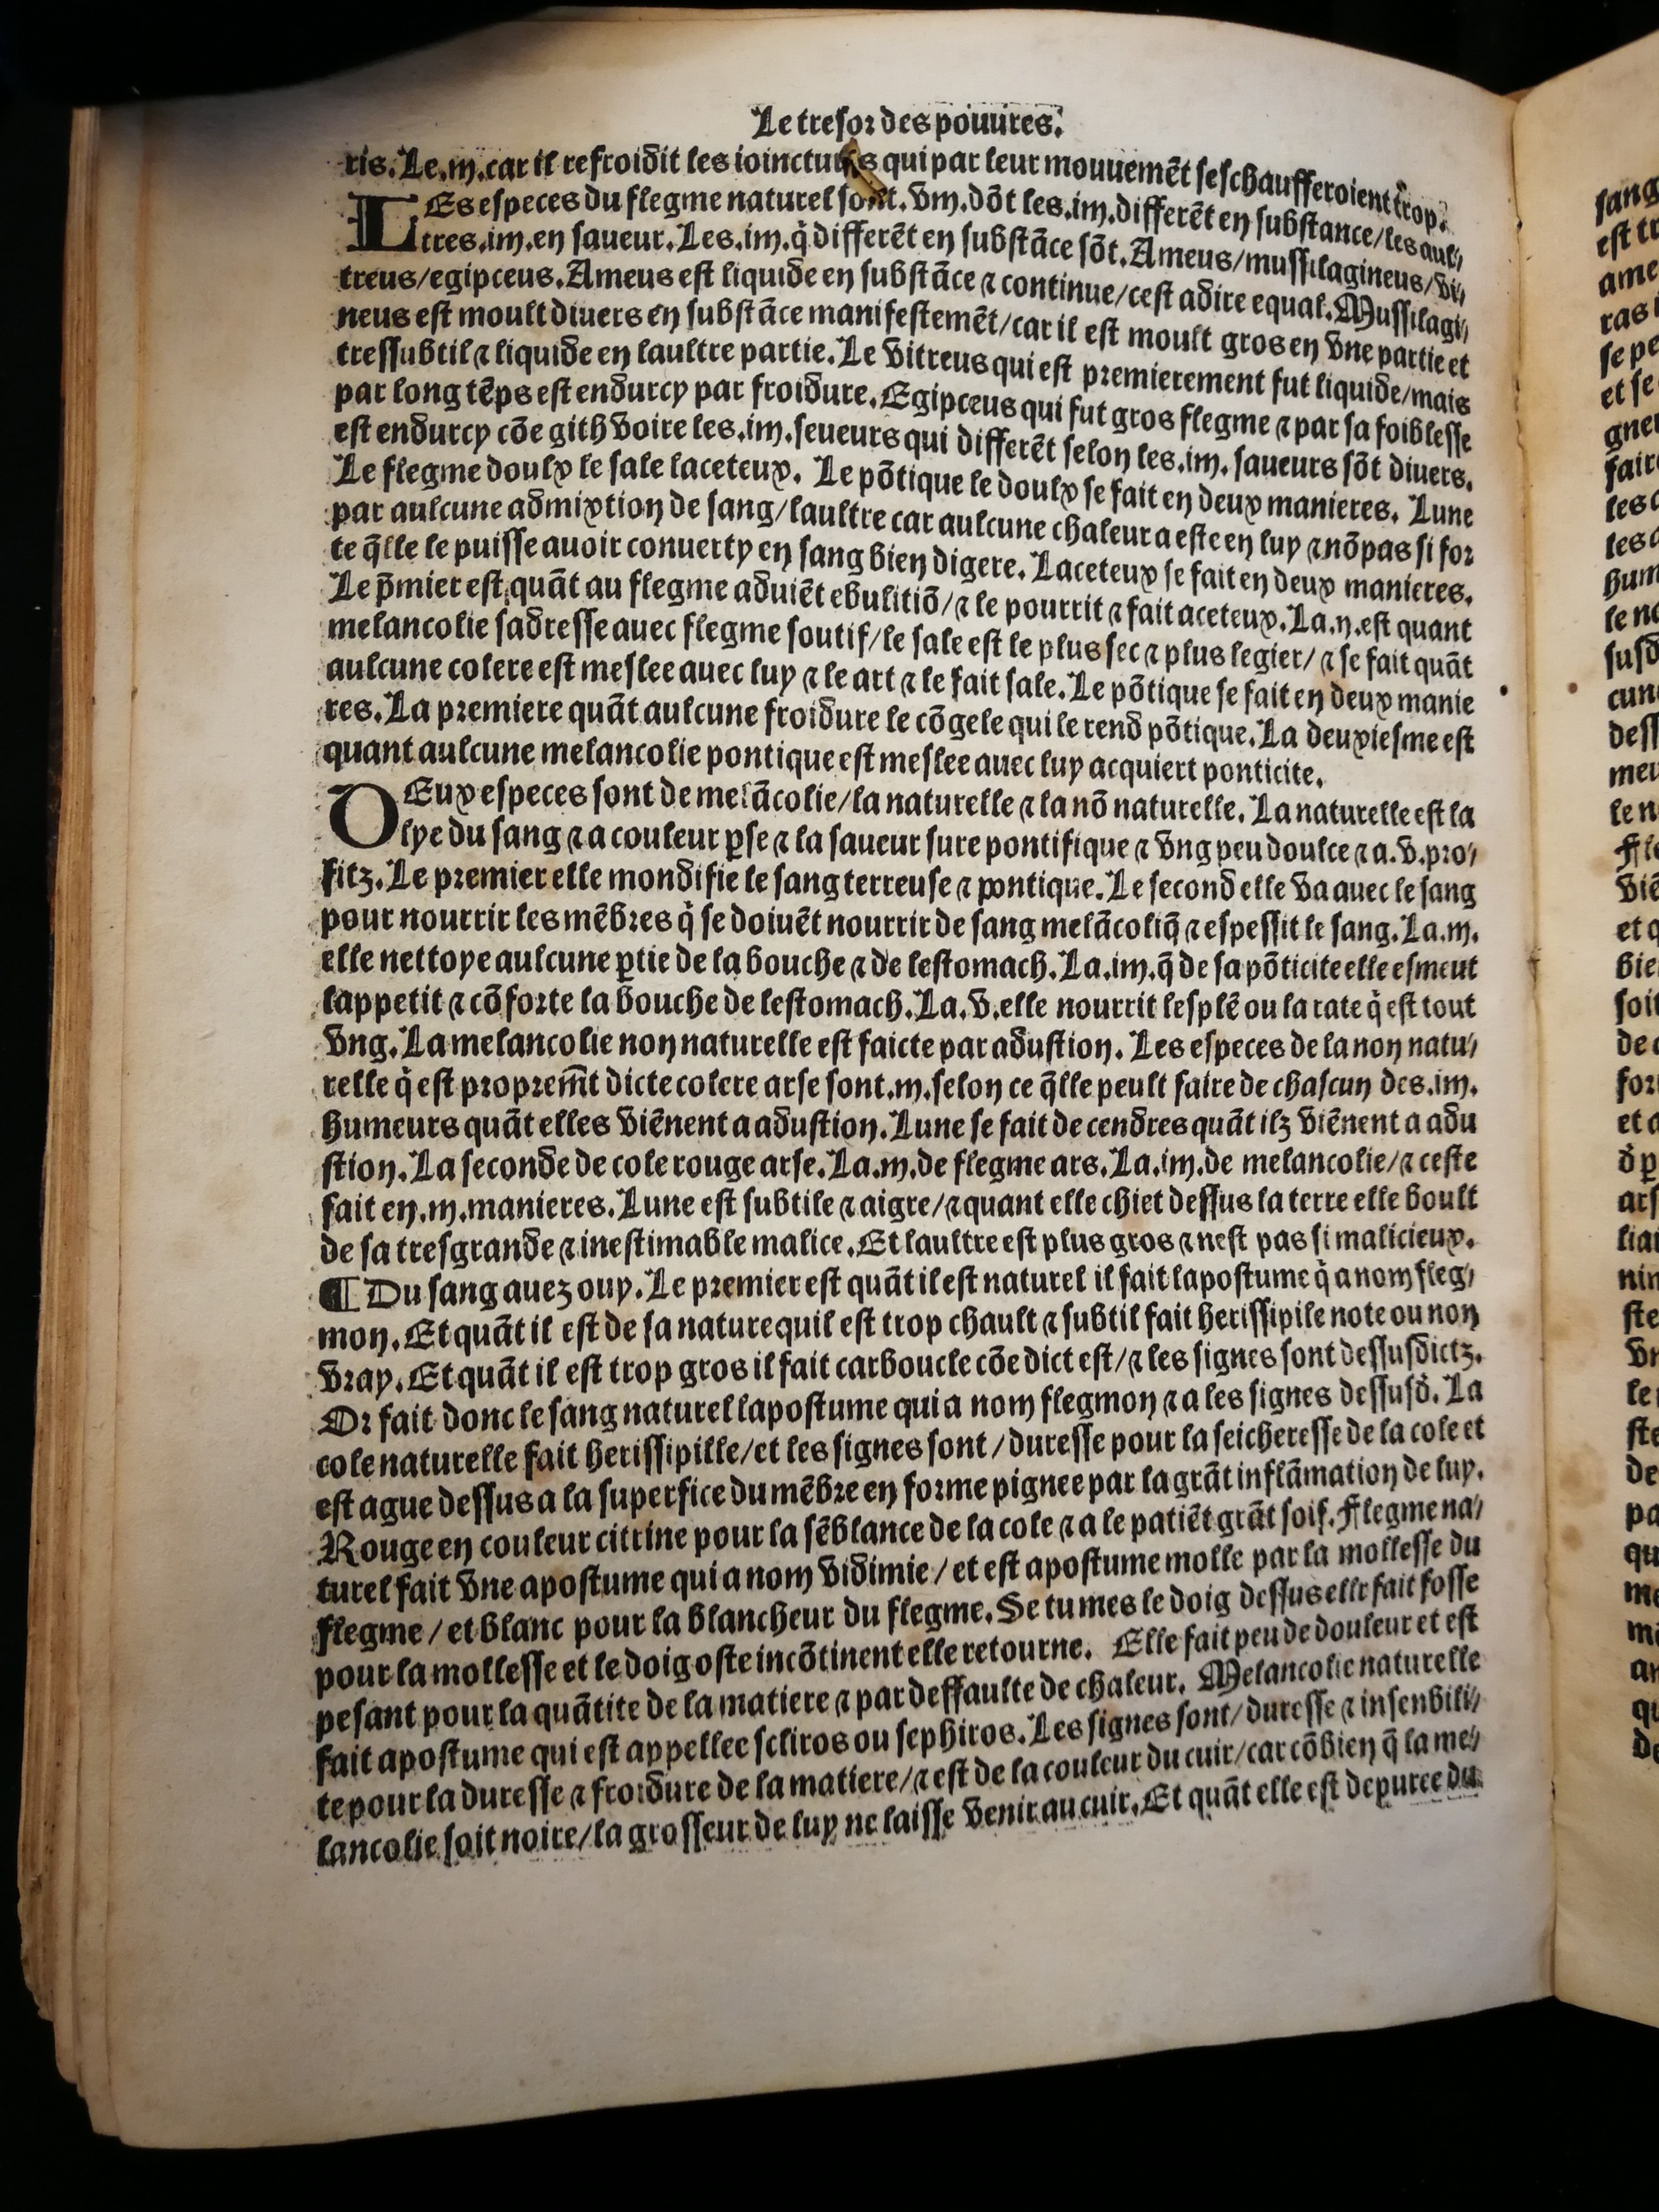 Le tresor des pouures.
ris. Le.iij.car il refroidit les ioinctures qui par leur mouuemēt seschaufferoient trop.
LEs especes du flegme naturel sont. viij. dōt les.iiij.differēt en substance/les aul⸗
tres.iiij.en saueur. Les.iiij.q̇ differēt en substāce sōt. Ameus/mussilagineus/vi⸗
treus/egipceus. Ameus est liquide en substāce ⁊ continue/cest adire equal. Mussilagi⸗
neus est moult diuers en substāce manifestemēt/car il est moult gros en vne partie et
tressubtil ⁊ liquide en laultre partie. Le vitreus qui est premierement fut liquide/mais
par long tēps est endurcy par froidure. Egipceus qui fut gros flegme ⁊ par sa foiblesse
est endurcy cōe gith voire les.iiij.seueurs qui differēt selon les.iiij. saueurs sōt diuers.
Le flegme doulx le sale laceteux. Le pōtique le doulx se fait en deux manieres. Lune
par aulcune admixtion de sang/laultre car aulcune chaleur a este en luy ⁊ nō pas si for
te q̄lle le puisse auoir conuerty en sang bien digere. Laceteux se fait en deux manieres.
Le p̄mier est quāt au flegme aduiēt ebulitiō/⁊ le pourrit ⁊ fait aceteux. La.ij.est quant
melancolie sadresse auec flegme soutif/le sale est le plus sec ⁊ plus legier/⁊ se fait quāt
aulcune colere est meslee auec luy ⁊ le art ⁊ le fait sale. Le pōtique se fait en deux manie
res. La premiere quāt aulcune froidure le cōgele qui le rend pōtique. La deuxiesme est
quant aulcune melancolie pontique est meslee auec luy acquiert ponticite.
DEux especes sont de melācolie/la naturelle ⁊ la nō naturelle. La naturelle est la
lye du sang ⁊ a couleur ꝑse ⁊ la saueur sure pontifique ⁊ vng peu doulce ⁊ a.v.pro⸗
fitz. Le premier elle mondifie le sang terreuse ⁊ pontique. Le second elle va auec le sang
pour nourrir les mēbres q̇ se doiuēt nourrir de sang melācoliq̄ ⁊ espessit le sang. La.iij.
elle nettoye aulcune ꝑtie de la bouche ⁊ de lestomach. La.iiij.q̄ de sa pōticite elle esmeut
lappetit ⁊ cōforte la bouche de lestomach. La.v.elle nourrit lesplē ou la rate q̇ est tout
vng. La melancolie non naturelle est faicte par adustion. Les especes de la non natu⸗
relle q̇ est propremēt dicte colere arse sont.iij.selon ce q̄lle peult faire de chascun des.iiij.
humeurs quāt elles viēnent a adustion. Lune se fait de cendres quāt ilz viēnent a adu
stion. La seconde de cole rouge arse. La.iij.de flegme ars. La.iiij.de melancolie/⁊ ceste
fait en.iij.manieres. Lune est subtile ⁊ aigre/⁊ quant elle chiet dessus la terre elle boult
de sa tresgrande ⁊ inestimable malice. Et laultre est plus gros ⁊ nest pas si malicieux.
¶ Du sang auez ouy. Le premier est quāt il est naturel il fait lapostume q̇ a nom fleg⸗
mon. Et quāt il est de sa nature quil est trop chault ⁊ subtil fait herissipile note ou non
vray. Et quāt il est trop gros il fait carboucle cōe dict est/⁊ les signes sont dessusdictz.
Or fait donc le sang naturel lapostume qui a nom flegmon ⁊ a les signes dessusd̄. La
cole naturelle fait herissipille/et les signes sont/duresse pour la seicheresse de la cole et
est ague dessus a la superfice du mēbre en forme pignee par la grāt inflāmation de luy.
Rouge en couleur citrine pour la sēblance de la cole ⁊ a le patiēt grāt soif. Flegme na⸗
turel fait vne apostume qui a nom vidimie/ et est apostume molle par la mollesse du
flegme/et blanc pour la blancheur du flegme. Se tu mes le doig dessus elle fait fosse
pour la mollesse et le doig oste incōtinent elle retourne. Elle fait peu de douleur et est
pesant pour la quātite de la matiere ⁊ par deffaulte de chaleur. Melancolie naturelle
fait apostume qui est appellee scliros ou sephiros. Les signes sont/duresse ⁊ insenbili⸗
te pour la duresse ⁊ froidure de la matiere/⁊ est de la couleur du cuir/car cōbien q̄ la me⸗
lancolie soit noire/la grosseur de luy ne laisse venir au cuir. Et quāt elle est depuree du